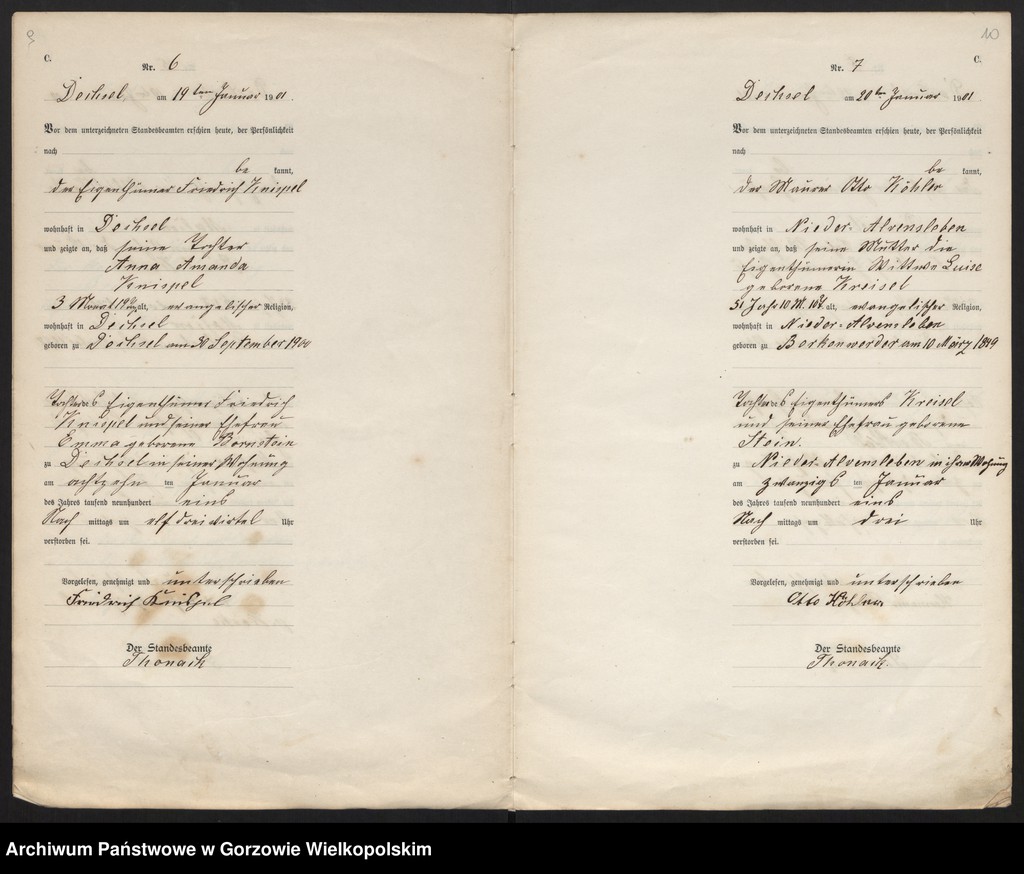 9
C.
Nr. 6
Dechsel am 19ten Januar 1901.
Vor dem unterzeichneten Standesbeamten erschien heute, der Persönlichkeit
nach
be kannt,
der Eigenthümer Friedrich Knispel
wohnhaft in Dechsel
und zeigte an, daß seine Tochter
Anna Amanda
Knispel
3 Monat 19 alt, evangelischer Religion,
wohnhaft in Dechsel
geboren zu Dechsel am 30 September 1900
Tochter des Eigenthümers Friedrich
Knispel und seiner Ehefrau
Emma geborene Bornstein
zu Dechsel in seiner Wohnung
am achtzehn ten Januar
des Jahres tausend neunhundert eins
Nach mittags um elf dreiviertel Uhr
verstorben sei.
Vorgelesen, genehmigt und unterschrieben
Friedrich Knispel
Der Standesbeamte
Thonack
10
C.
Nr. 7
Dechsel am 20ten Januar 1901
Vor dem unterzeichneten Standesbeamten erschien heute, der Persönlichkeit
nach
be kannt,
der Maurer Otto Köhler
wohnhaft in Nieder-Alvensleben
und zeigte an, daß seine Mutter die
Eigenthümerin Wittwe Luise
geborene Kreisel
51 Jahr 10 M. 10 T. alt, evangelischer Religion,
wohnhaft in Nieder-Alvensleben
geboren zu Borkenwerder am 10 März 1849
Tochter des Eigenthümers Kreisel
und seiner Ehefrau geborene
Stein.
zu Nieder-Alvensleben in ihrer Wohnung
am zwanzigs ten Januar
des Jahres tausend neunhundert eins
Nach mittags um drei Uhr
verstorben sei.
Vorgelesen, genehmigt und unterschrieben
Otto Köhler
Der Standesbeamte
Thonack.
Archiwum Państwowe w Gorzowie Wielkopolskim